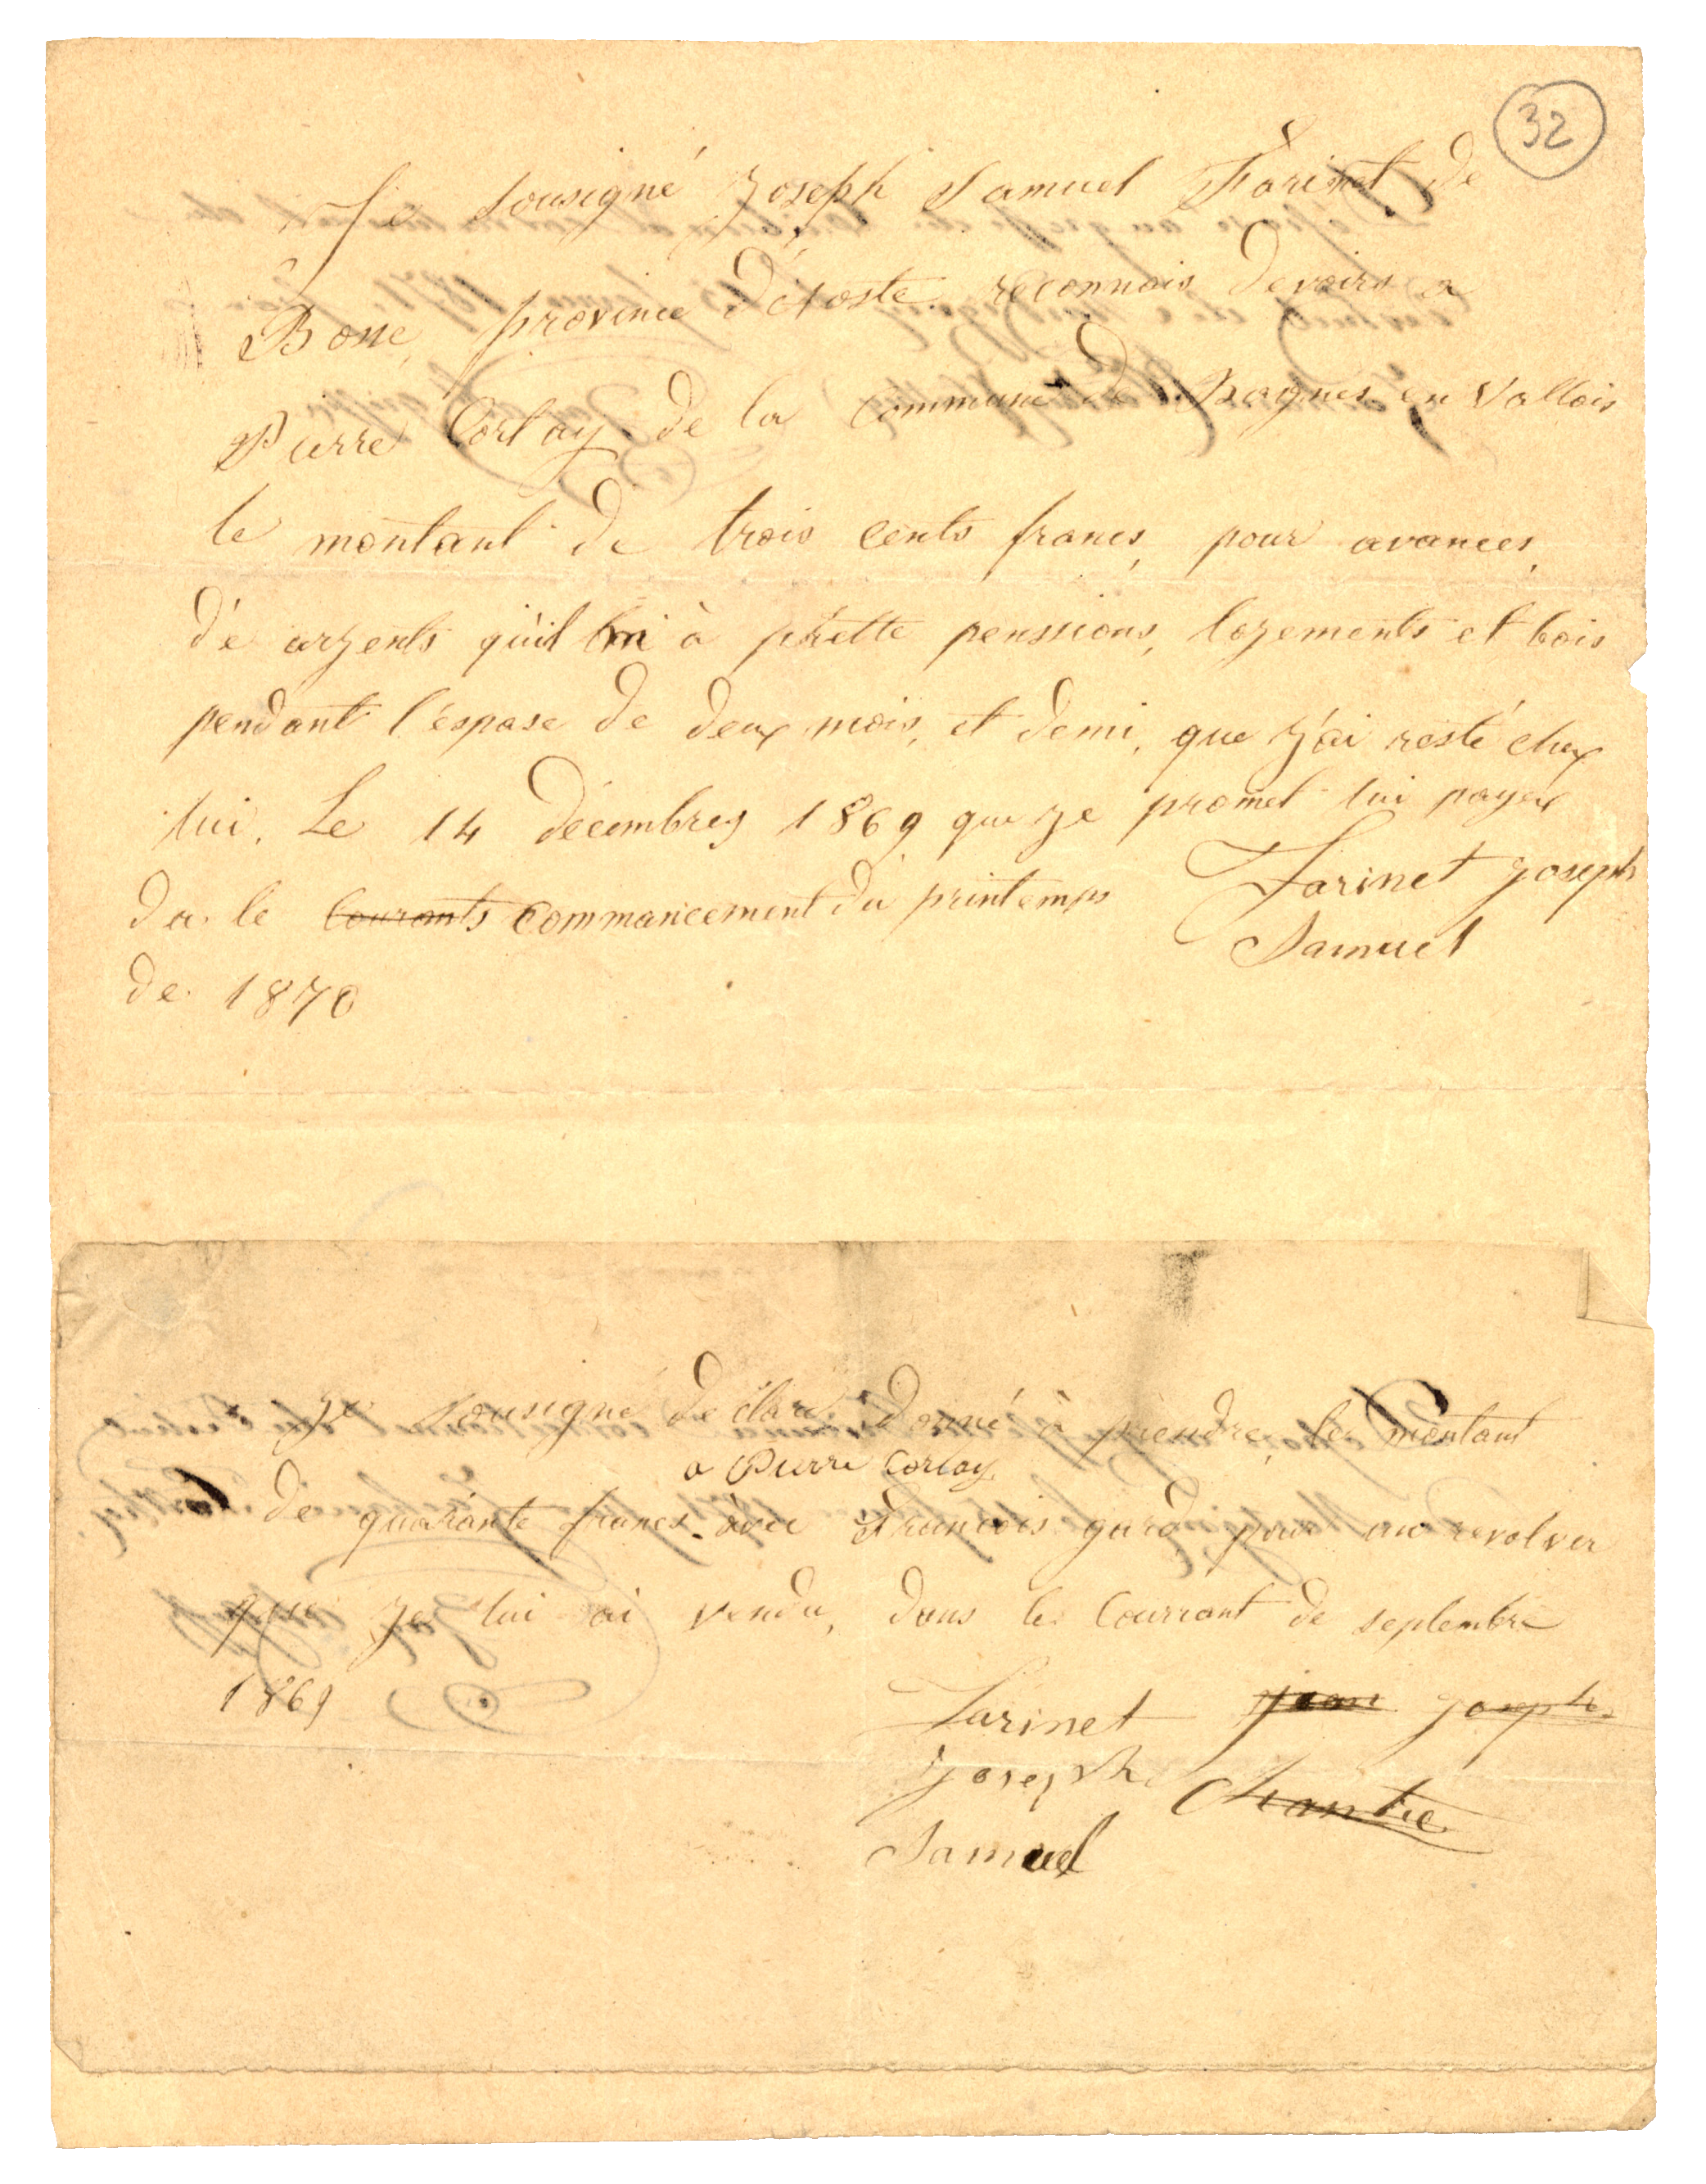 32
Je sousigné Joseph Samuel Farinet de
Bosse province d'Aoste reconnais devoirs a
Pierre Corlay de la commune de Bagnes en Vallois
le montant de trois cents francs, pour avances,
d'é argents quil m à prette penssions, logements et bois
pendant l'éspase de deux mois, et demi, que j'ai resté chez
lui. Le 14 décembres 1869 que je promet lui payer
da le courants commancement du printemps
de 1870
Farinet Joseph
Samuel
Je sousigné déclare donné à prendre le montant
a Pierre Corlay
de quarante francs avec François gard pour un revolver
que je lui ai vendu, dans le Courrant de septembre
1869
Farinet jean Joseph
Joseph Chantre
Samuel